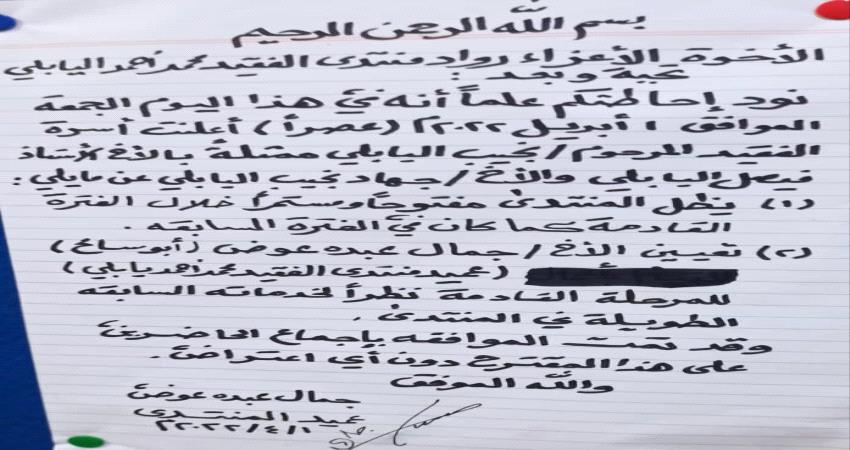 بسم الله الرحمن الرحيم
الأخوة الأعزاء رواد منتدى الفقيد محمد أحمد اليابلي
تحية وبعد :
نود إحاطتكم علماً أنه في هذا اليوم الجمعة
الموافق ١ أبريل ٢٠٢٢م (عصراً) أعلنت أسرة
الفقيد المرحوم / نجيب اليابلي ممثلة بالأخ الأستاذ
فيصل اليابلي والأخ / جهاد نجيب اليابلي عن مايلي :
(١) يظل المنتدى مفتوحاً ومستمراً خلال الفترة
القادمة كما كان في الفترة السابقه .
(٢) تعيين الأخ / جمال عبده عوض (أبو سامح)
(عميد منتدى الفقيد محمد أحمد يابلي)
للمرحلة القادمة نظراً لخدماته السابقه
الطويلة في المنتدى .
وقد تمت الموافقه بإجماع الحاضرين
على هذا المقترح دون أي اعتراض .
والله الموفق
جمال عبده عوض
عميد المنتدى
٢٠٢٢/٤/١م